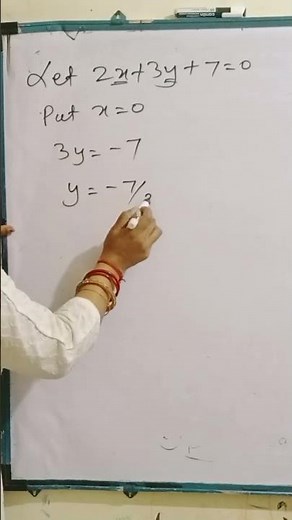 Let 2x+3y+7=0
Put x=0
3y=-7
y=-7/3